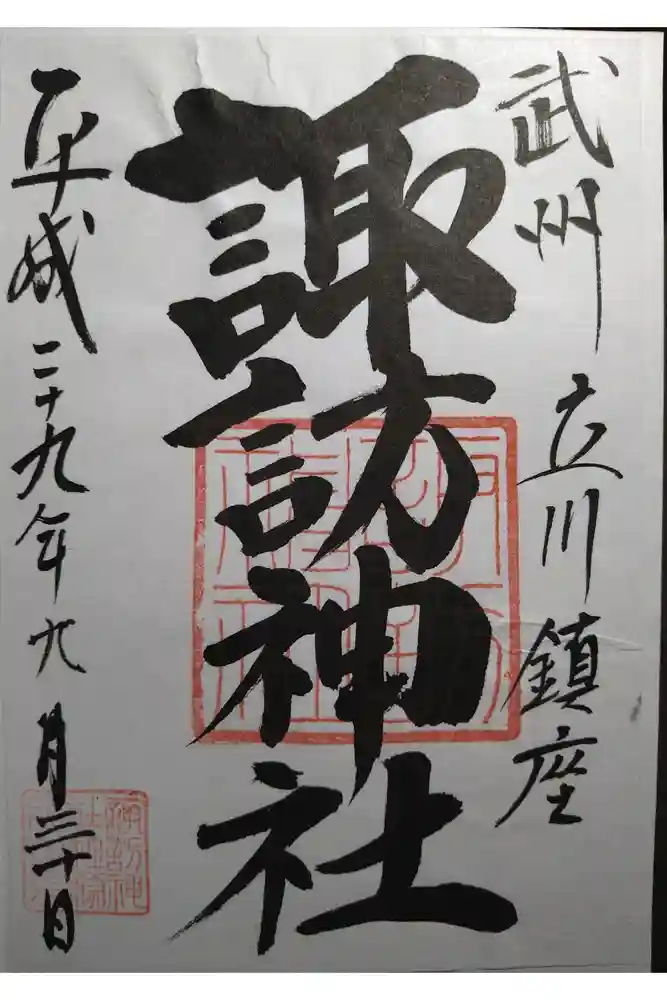 武州 立川鎮座
諏訪神社
平成二十九年九月三十日